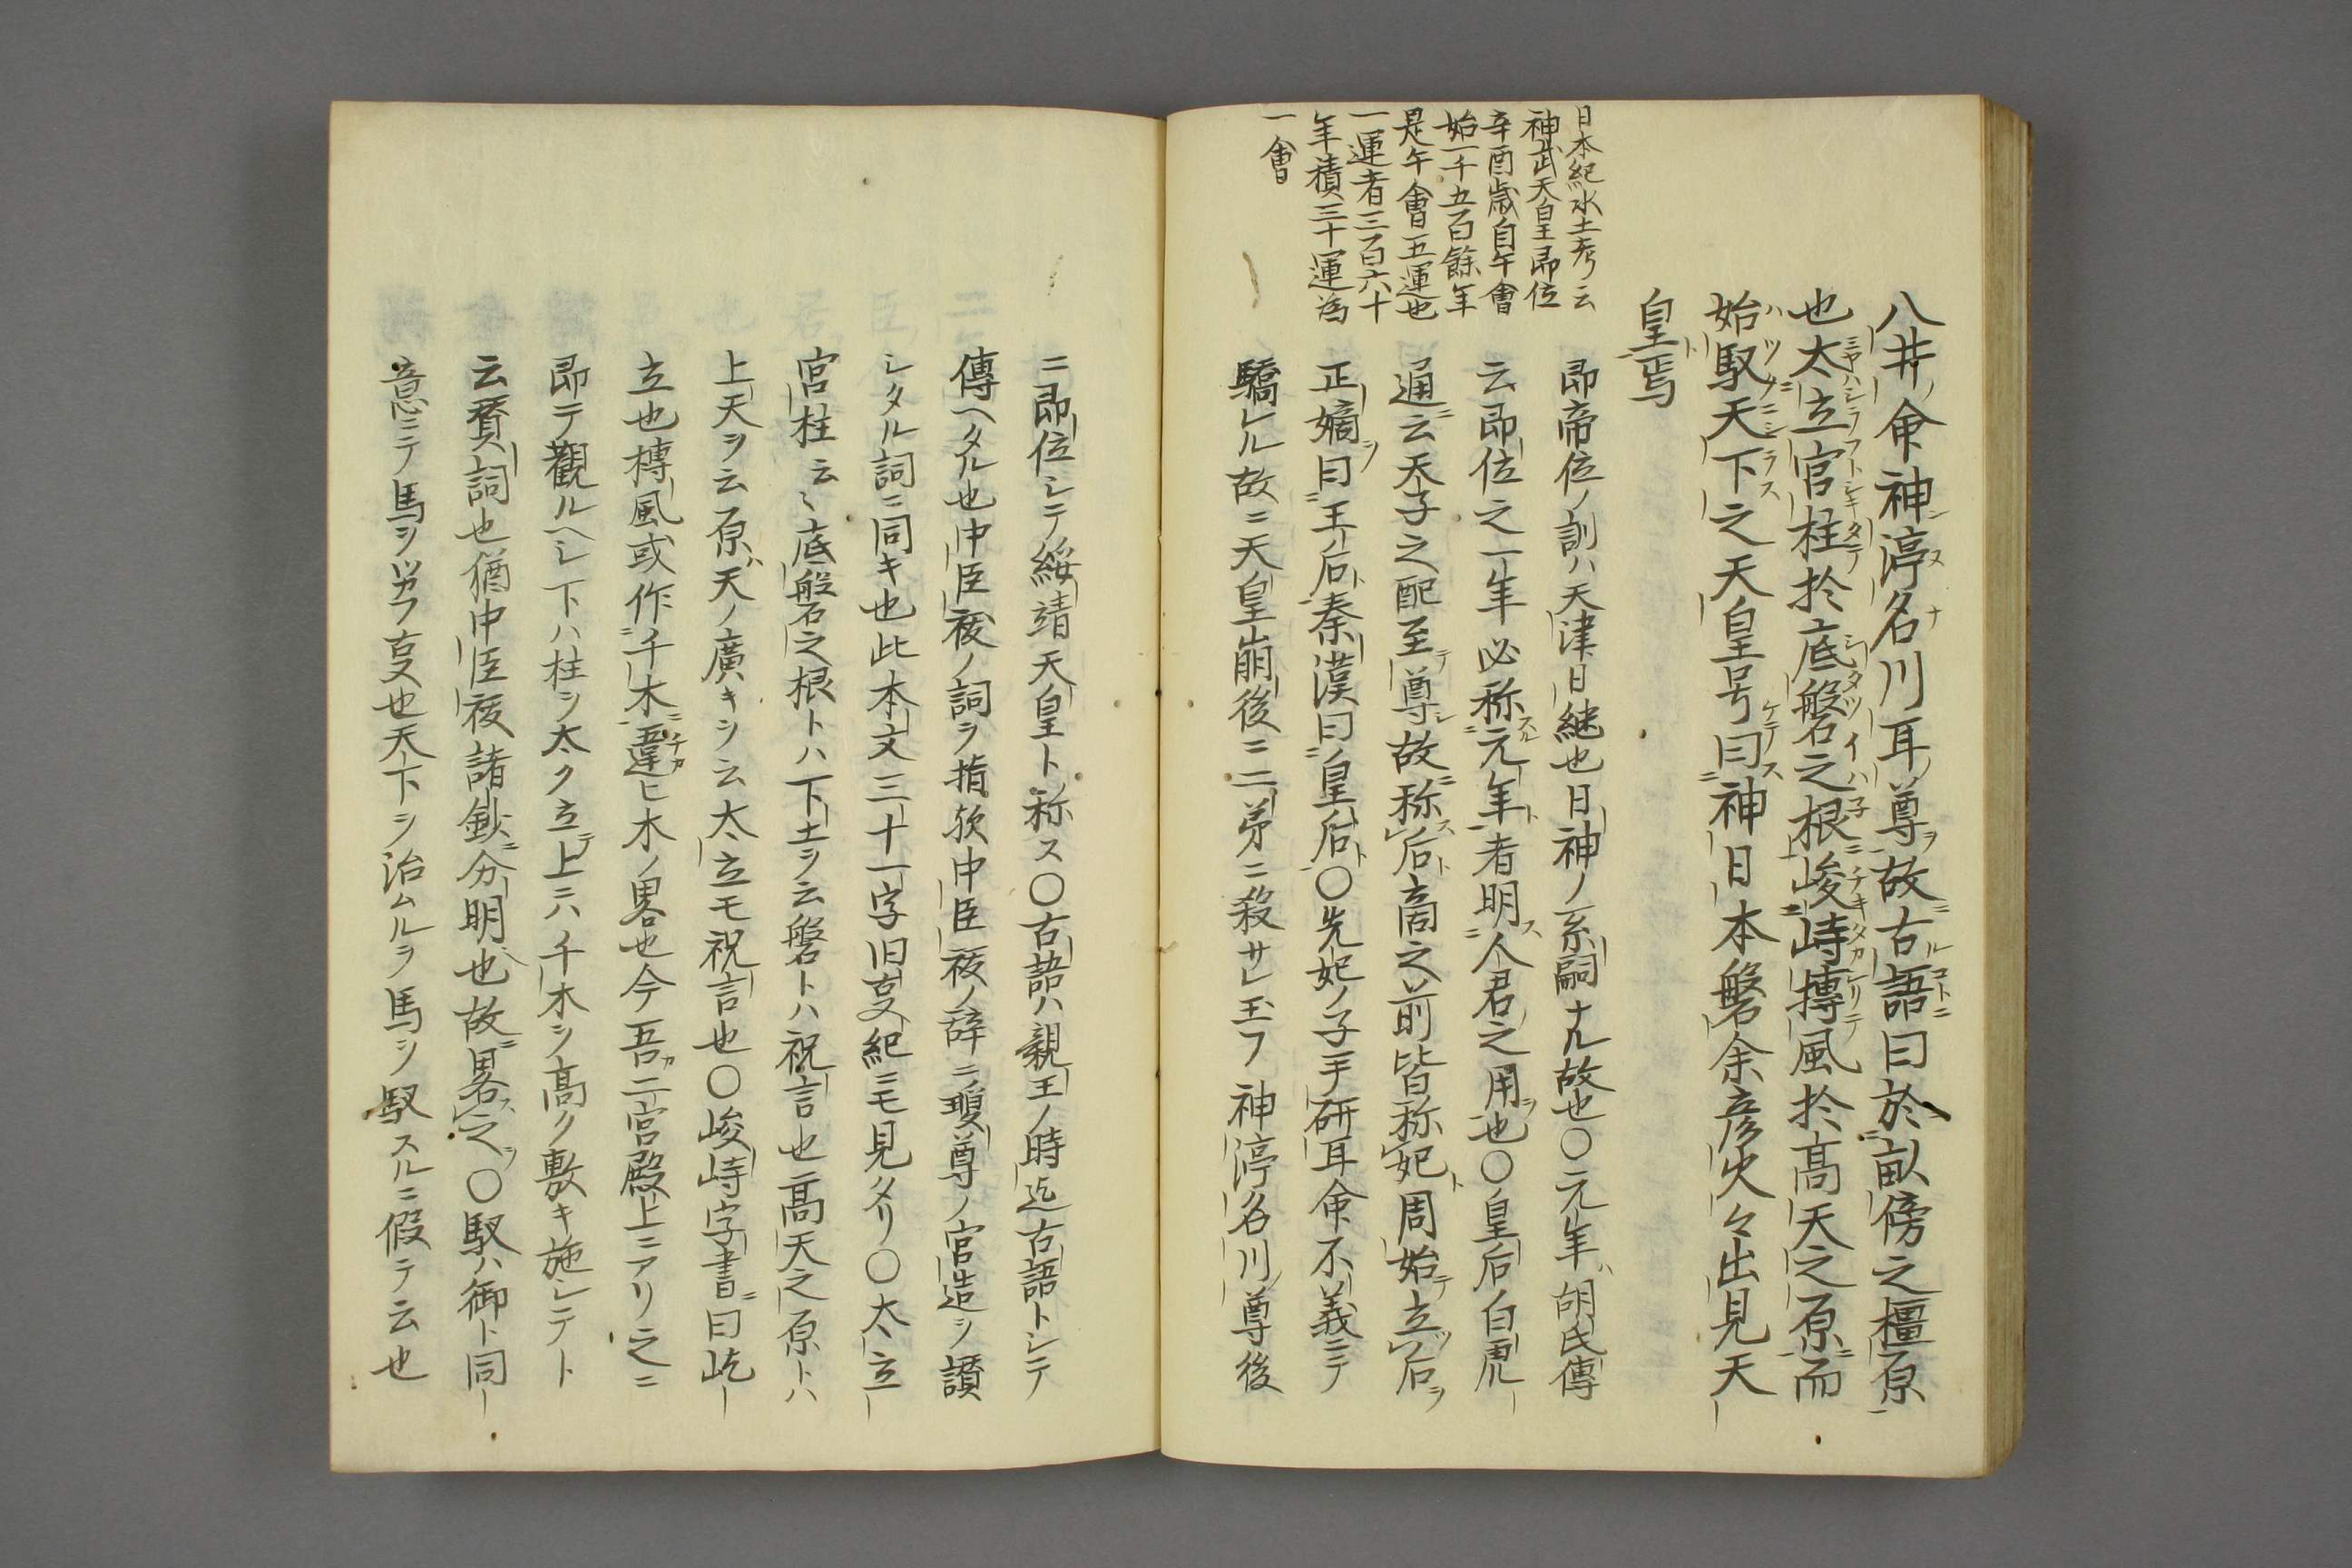 八井命神渟名川耳尊故古語曰於畝傍之橿原
也太立宮柱於底磐之根峻峙搏風於高天之原而
始馭天下之天皇号曰神日本磐余彦火々出見天
皇焉
日本紀水土考云
神武天皇即位
辛酉歳自午會
始一千五百餘年
是午會五運也
一運者三百六十
年積三十運為
一會
即帝位ノ訓ハ天津日継也日神ノ系嗣ナル故也〇元年ハ胡氏傳
云即位之一年必称スル元年ト者明ス人君之用ヲ也〇皇后白虎
通ニ云天子之配至テ尊シ故ニ称ス后ト商之前皆称妃ト周始テ立ツ后ヲ
正嫡ヲ曰王后ト秦漢曰皇后ト〇先妃ノ子手研耳命不義ニテ
驕レル故ニ天皇崩後ニ二弟ニ殺サレ玉フ神渟名川尊後
ニ即位シテ綏靖天皇ト称ス〇古語ハ親王ノ時迄古語トシテ
傳ヘタル也中臣祓ノ詞ヲ指歟中臣祓ノ辞ニ瓊尊ノ宮造ヲ讃
シタル詞ニ同キ也此本文三十一字旧事紀ニモ見タリ〇太立
宮柱云〻底磐之根トハ下土ヲ云磐トハ祝言也高天之原トハ
上天ヲ云原ハ天ノ廣キヲ云太立モ祝言也〇峻峙字書ニ曰屹
立也搏風或作千木ニ違ヒ木ノ畧也今吾カ二宮殿上ニアリ之ニ
即テ觀ルヘシ下ハ柱ヲ太ク立テ上ニハ千木ヲ高ク敷キ施シテト
云賛詞也猶中臣祓諸鈔ニ分明也故ニ畧ス之ヲ〇馭ハ御ト同
意ニテ馬ヲツカフ事也天下ヲ治ムルヲ馬ヲ馭スルニ假テ云也